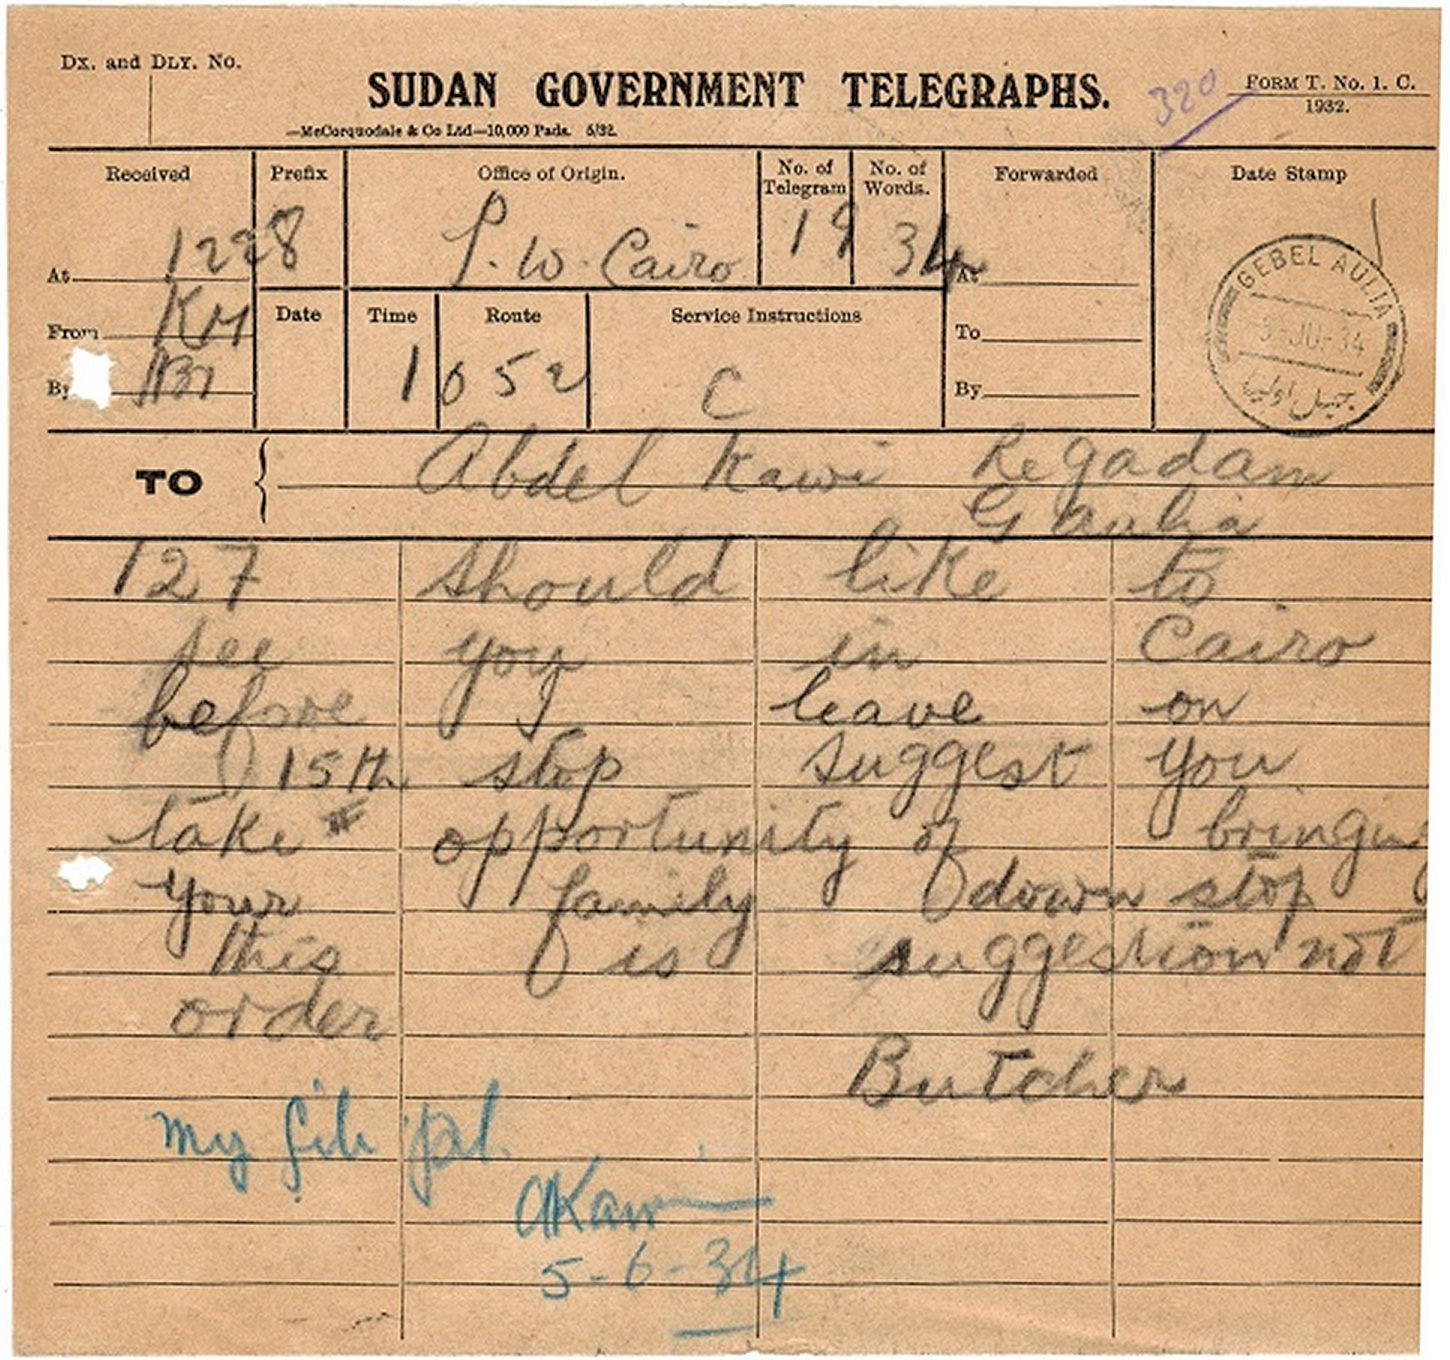 Dx. and Dly. No.
SUDAN GOVERNMENT TELEGRAPHS.
320
Form T. No. 1. C.
1932.
—McCorquodale & Co Ltd—10,000 Pads. 5/32.
Received
Prefix
Office of Origin.
No. of Telegram
No. of Words.
Forwarded
Date Stamp
At 1228
P. W. Cairo
19
34
At
From KH
Date
Time
Route
Service Instructions
To
By
1052
C
By
GEBEL AULIA
JU-34
جبل اوليا
TO
Abdel Kawi Regadam
G Aulia
127 should like to
see you in Cairo
before I leave on
15th stop suggest you
take opportunity of bringing
your family down stop
this is suggestion not
order
Butcher
My file pl.
AKawi
5-6-34